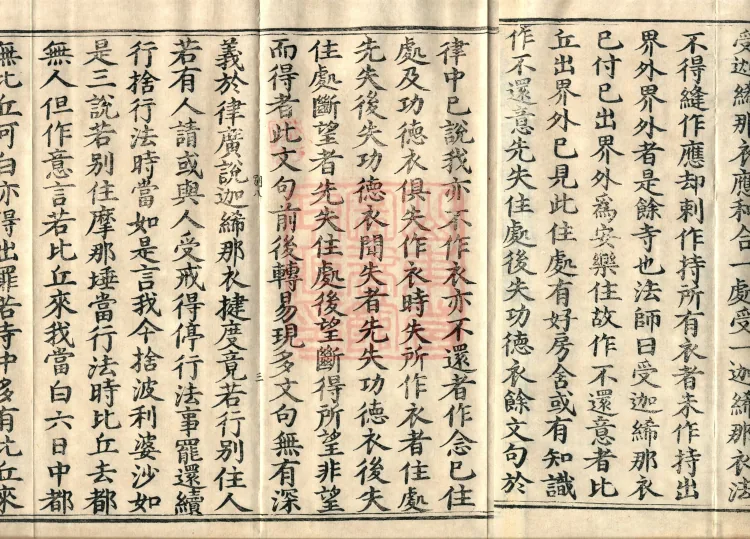 受迦締那衣應和合一處受一迦締那衣法
不得縫作應却刺作持所有衣者未作持出
界外界外者是餘寺也法師曰受迦締那衣
已付已出界外爲安樂住故作不還意者比
丘出界外已見此住處有好房舍或有知識
作不還意先失住處後失功德衣餘文句於
律中已說我亦不作衣亦不還者作念已住
處及功德衣俱失作衣時失所作衣者住處
先失後失功德衣聞失者先失功德衣後失
住處斷望者先失住處後望斷得所望非望
而得者此文句前後轉易現多文句無有深
三
義於律廣說迦締那衣揵度竟若行別住人
若有人請或與人受戒得停行法事罷還續
行捨行法時當如是言我今捨波利婆沙如
是三說若別住摩那埵當行法時比丘去都
無人但作意言若比丘來我當白六日中都
無比丘可白亦得出罪若寺中多有比丘來